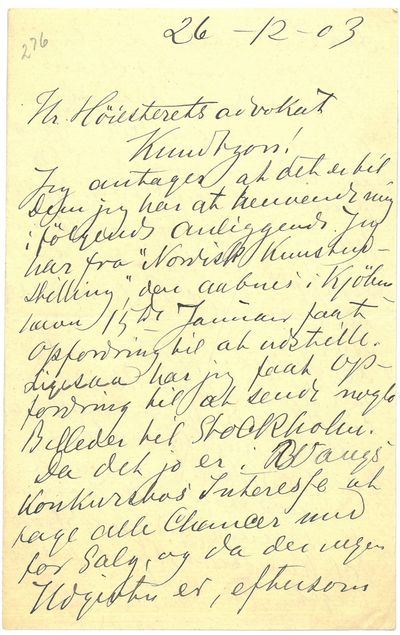 276
26-12-03
Hr. Höiesteretsadvokat
Kundtzon!
Jeg antager at det er til
Dem jeg har at henvende mig
i følgende anliggende. Jeg
har fra "Nordisk Kunstud-
stilling", der aabnes i Kjöben
havn 15de Januar faat
Opfordring til at udstille.
Ligesaa har jeg faat Op-
fordring til at sende nogle
Billeder til Stockholm.
Da det jo er i Wangs
Konkursbos Interesse at
tage alle Chancer med
for Salg, og da der ingen
Udgifter er, eftersom